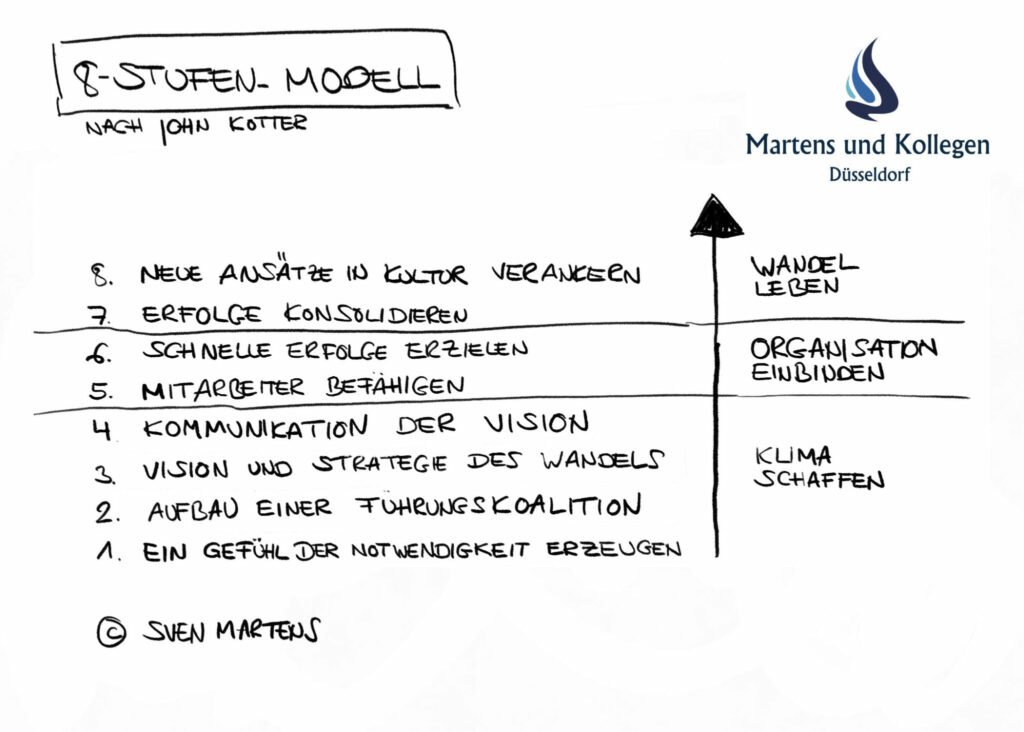 8-STUFEN-MODELL
NACH JOHN KOTTER
Martens und Kollegen
Düsseldorf
8. NEUE ANSÄTZE IN KULTUR VERANKERN
7. ERFOLGE KONSOLIDIEREN
WANDEL
LEBEN
6. SCHNELLE ERFOLGE ERZIELEN
5. MITARBEITER BEFÄHIGEN
ORGANISATION
EINBINDEN
4 KOMMUNIKATION DER VISION
3. VISION UND STRATEGIE DES WANDELS
2. AUFBAU EINER FÜHRUNGSKOALITION
1. EIN GEFÜHL DER NOTWENDIGKEIT ERZEUGEN
KLIMA
SCHAFFEN
© SVEN MARTENS